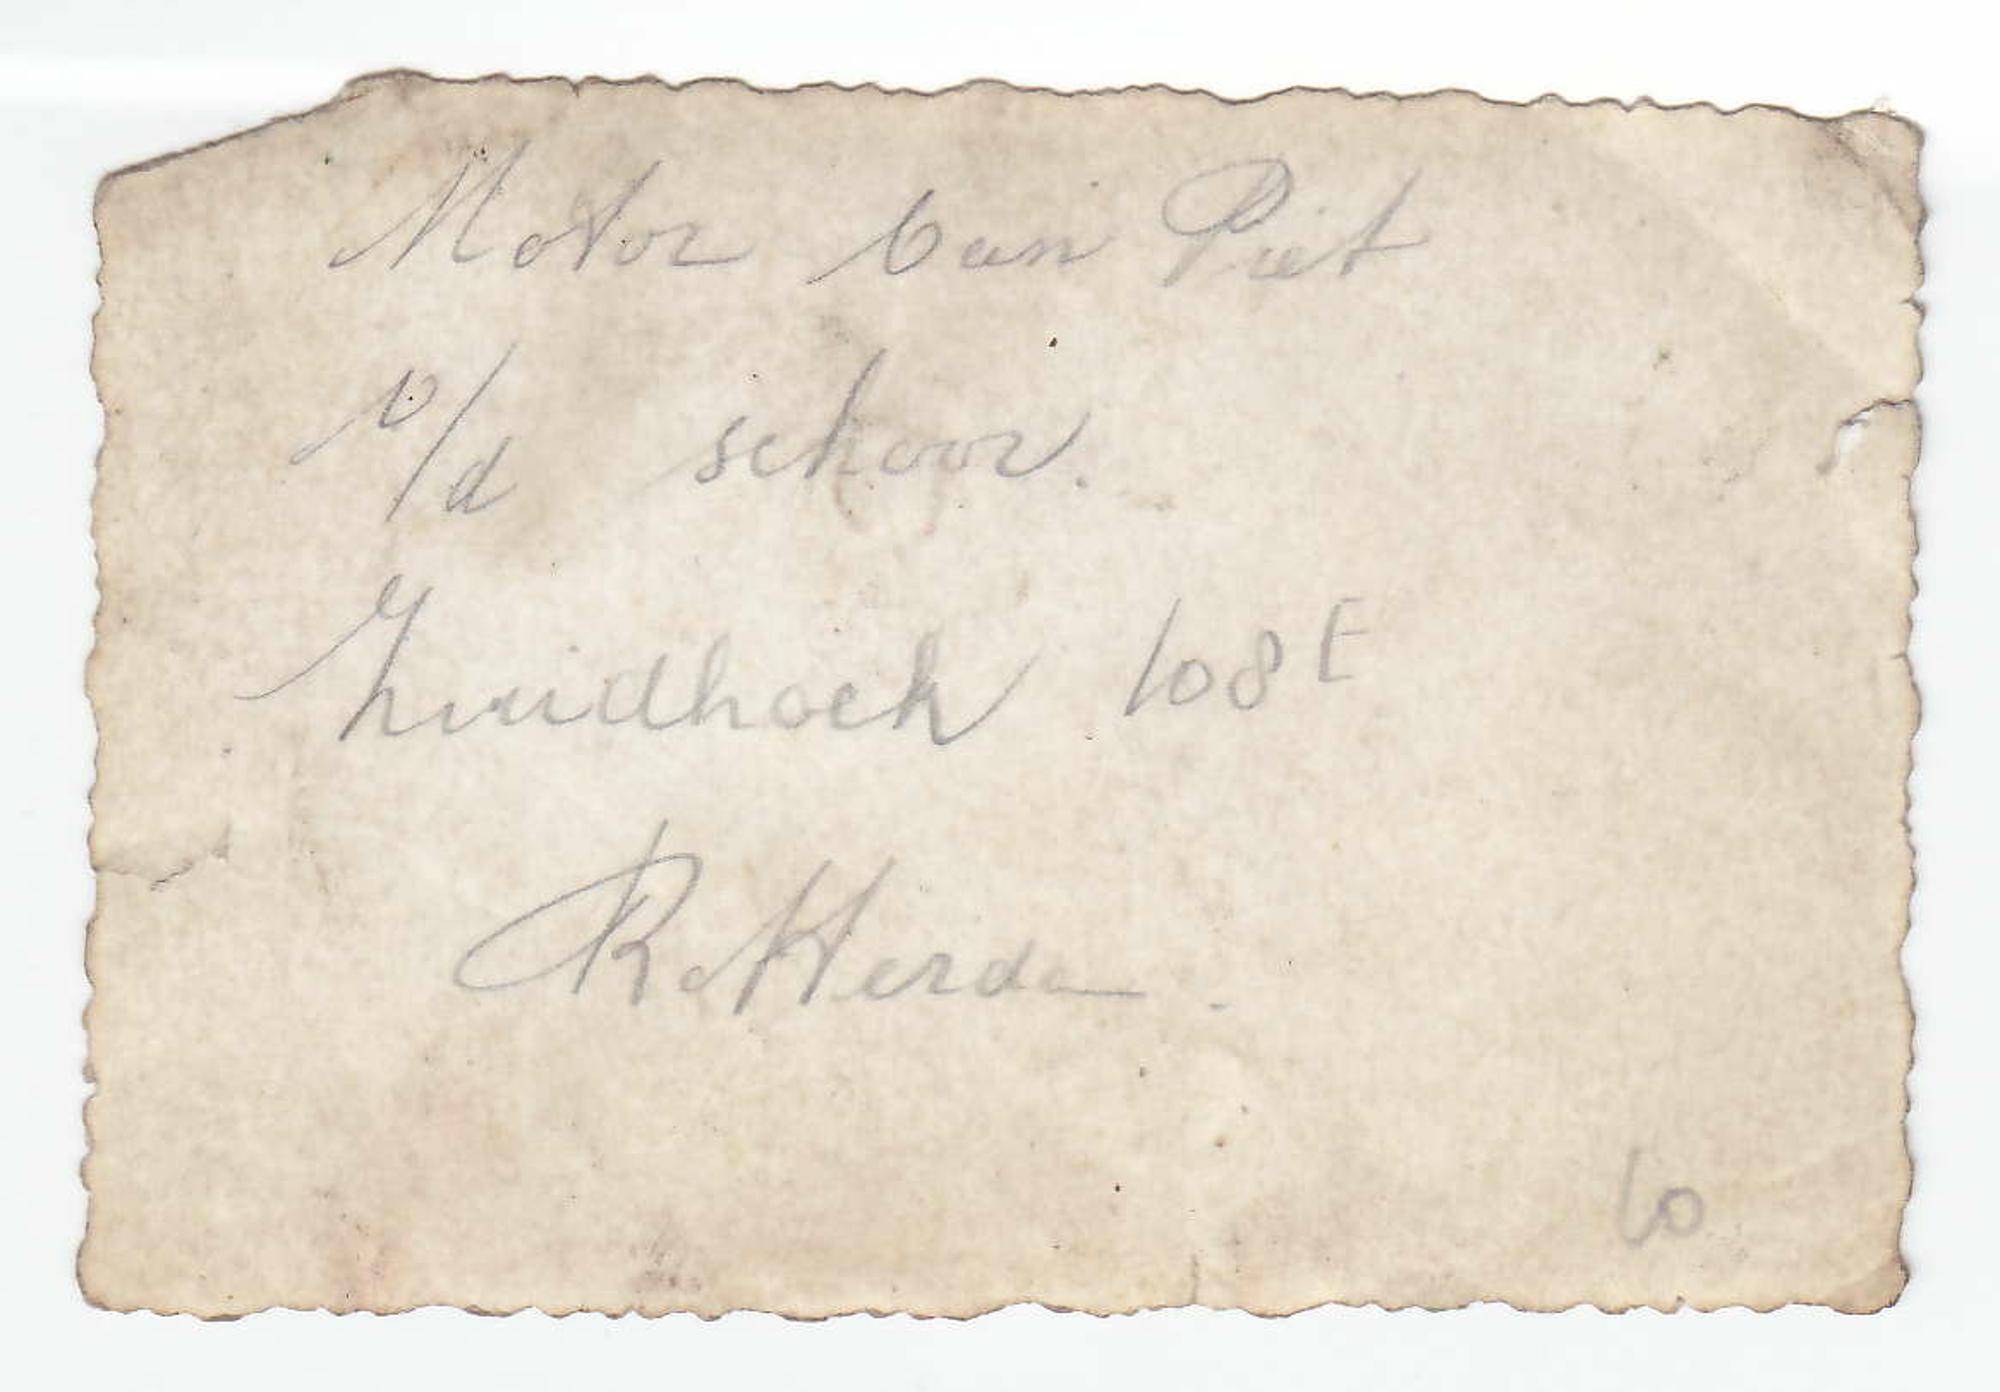 Motor van Piet
v/d schoor.
Zuidhoek 108 E
Rotterda.
60